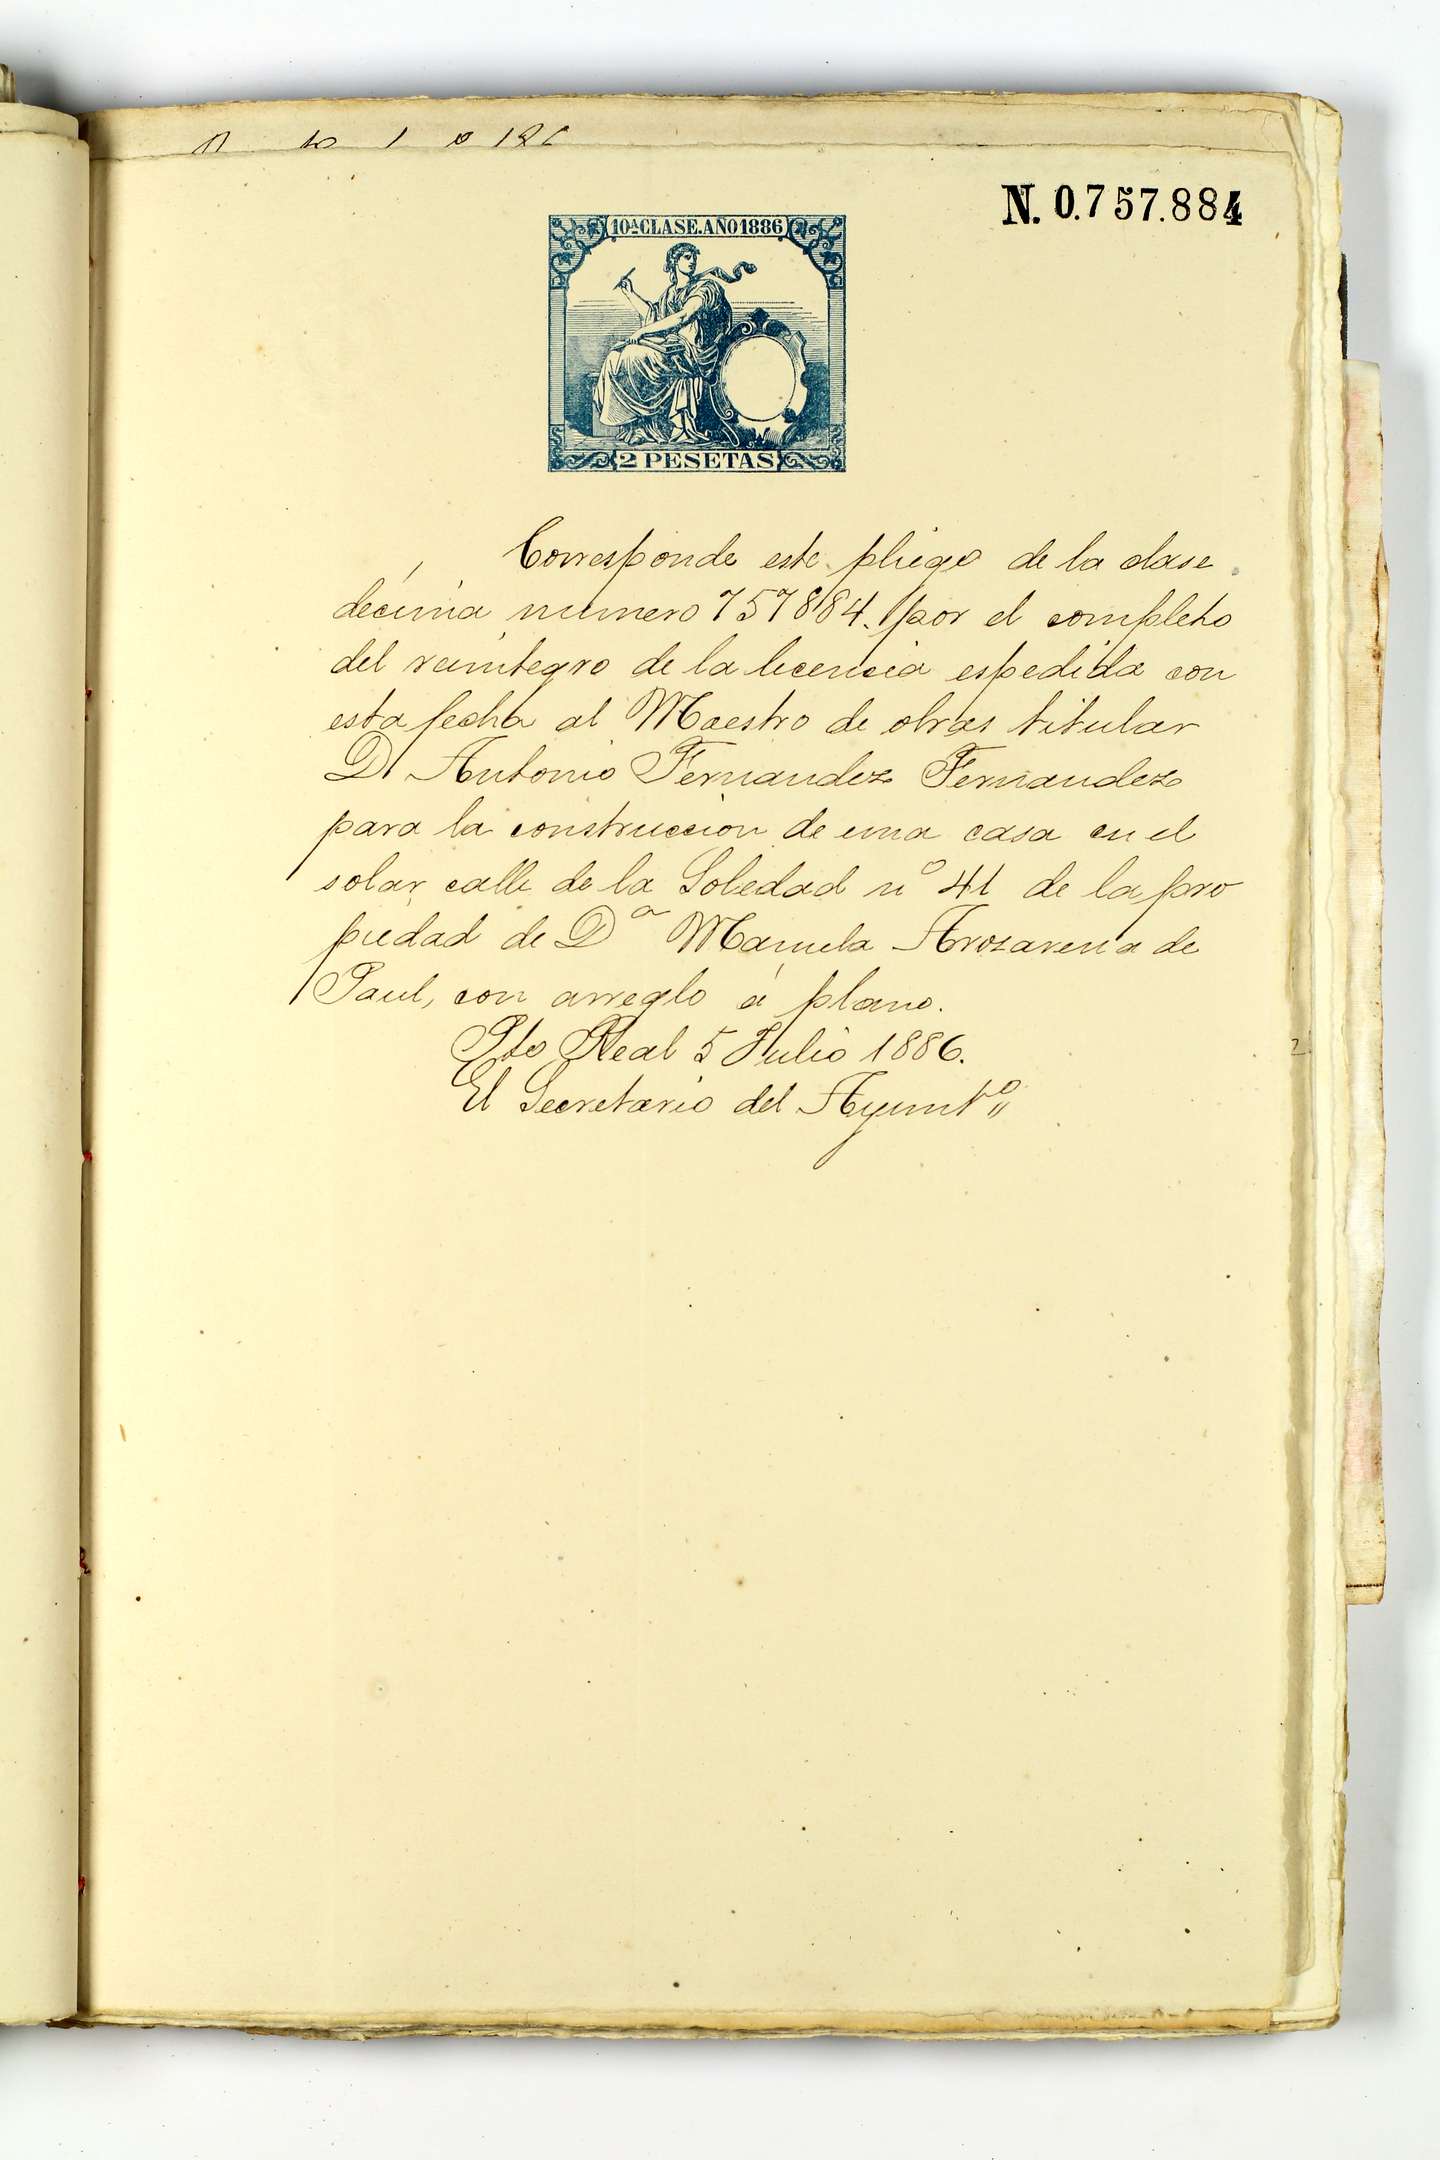 N. 0.757.884
10ª CLASE. AÑO 1886
2 PESETAS
Corresponde este pliego de la clase
décima numero 757884. por el completo
del reintegro de la licencia espedida con
esta fecha al Maestro de obras titular
D Antonio Fernandez Fernandez
para la construccion de una casa en el
solar calle de la Soledad nº 41 de la pro
piedad de Dª Manuela Arozarena de
Paul, con arreglo á plano.
Pto Real 5 Julio 1886.
El Secretario del Ayuntº